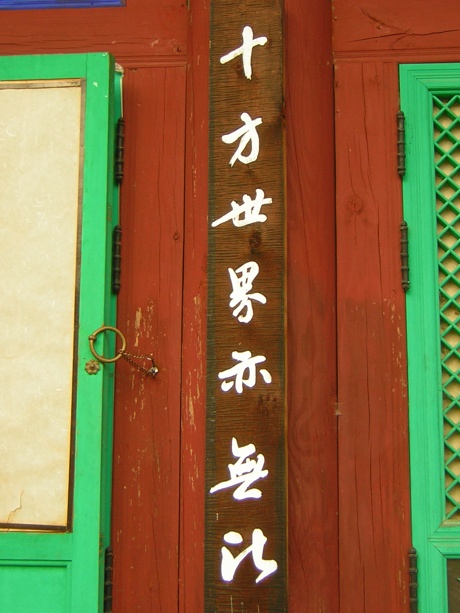 十方世界亦無比